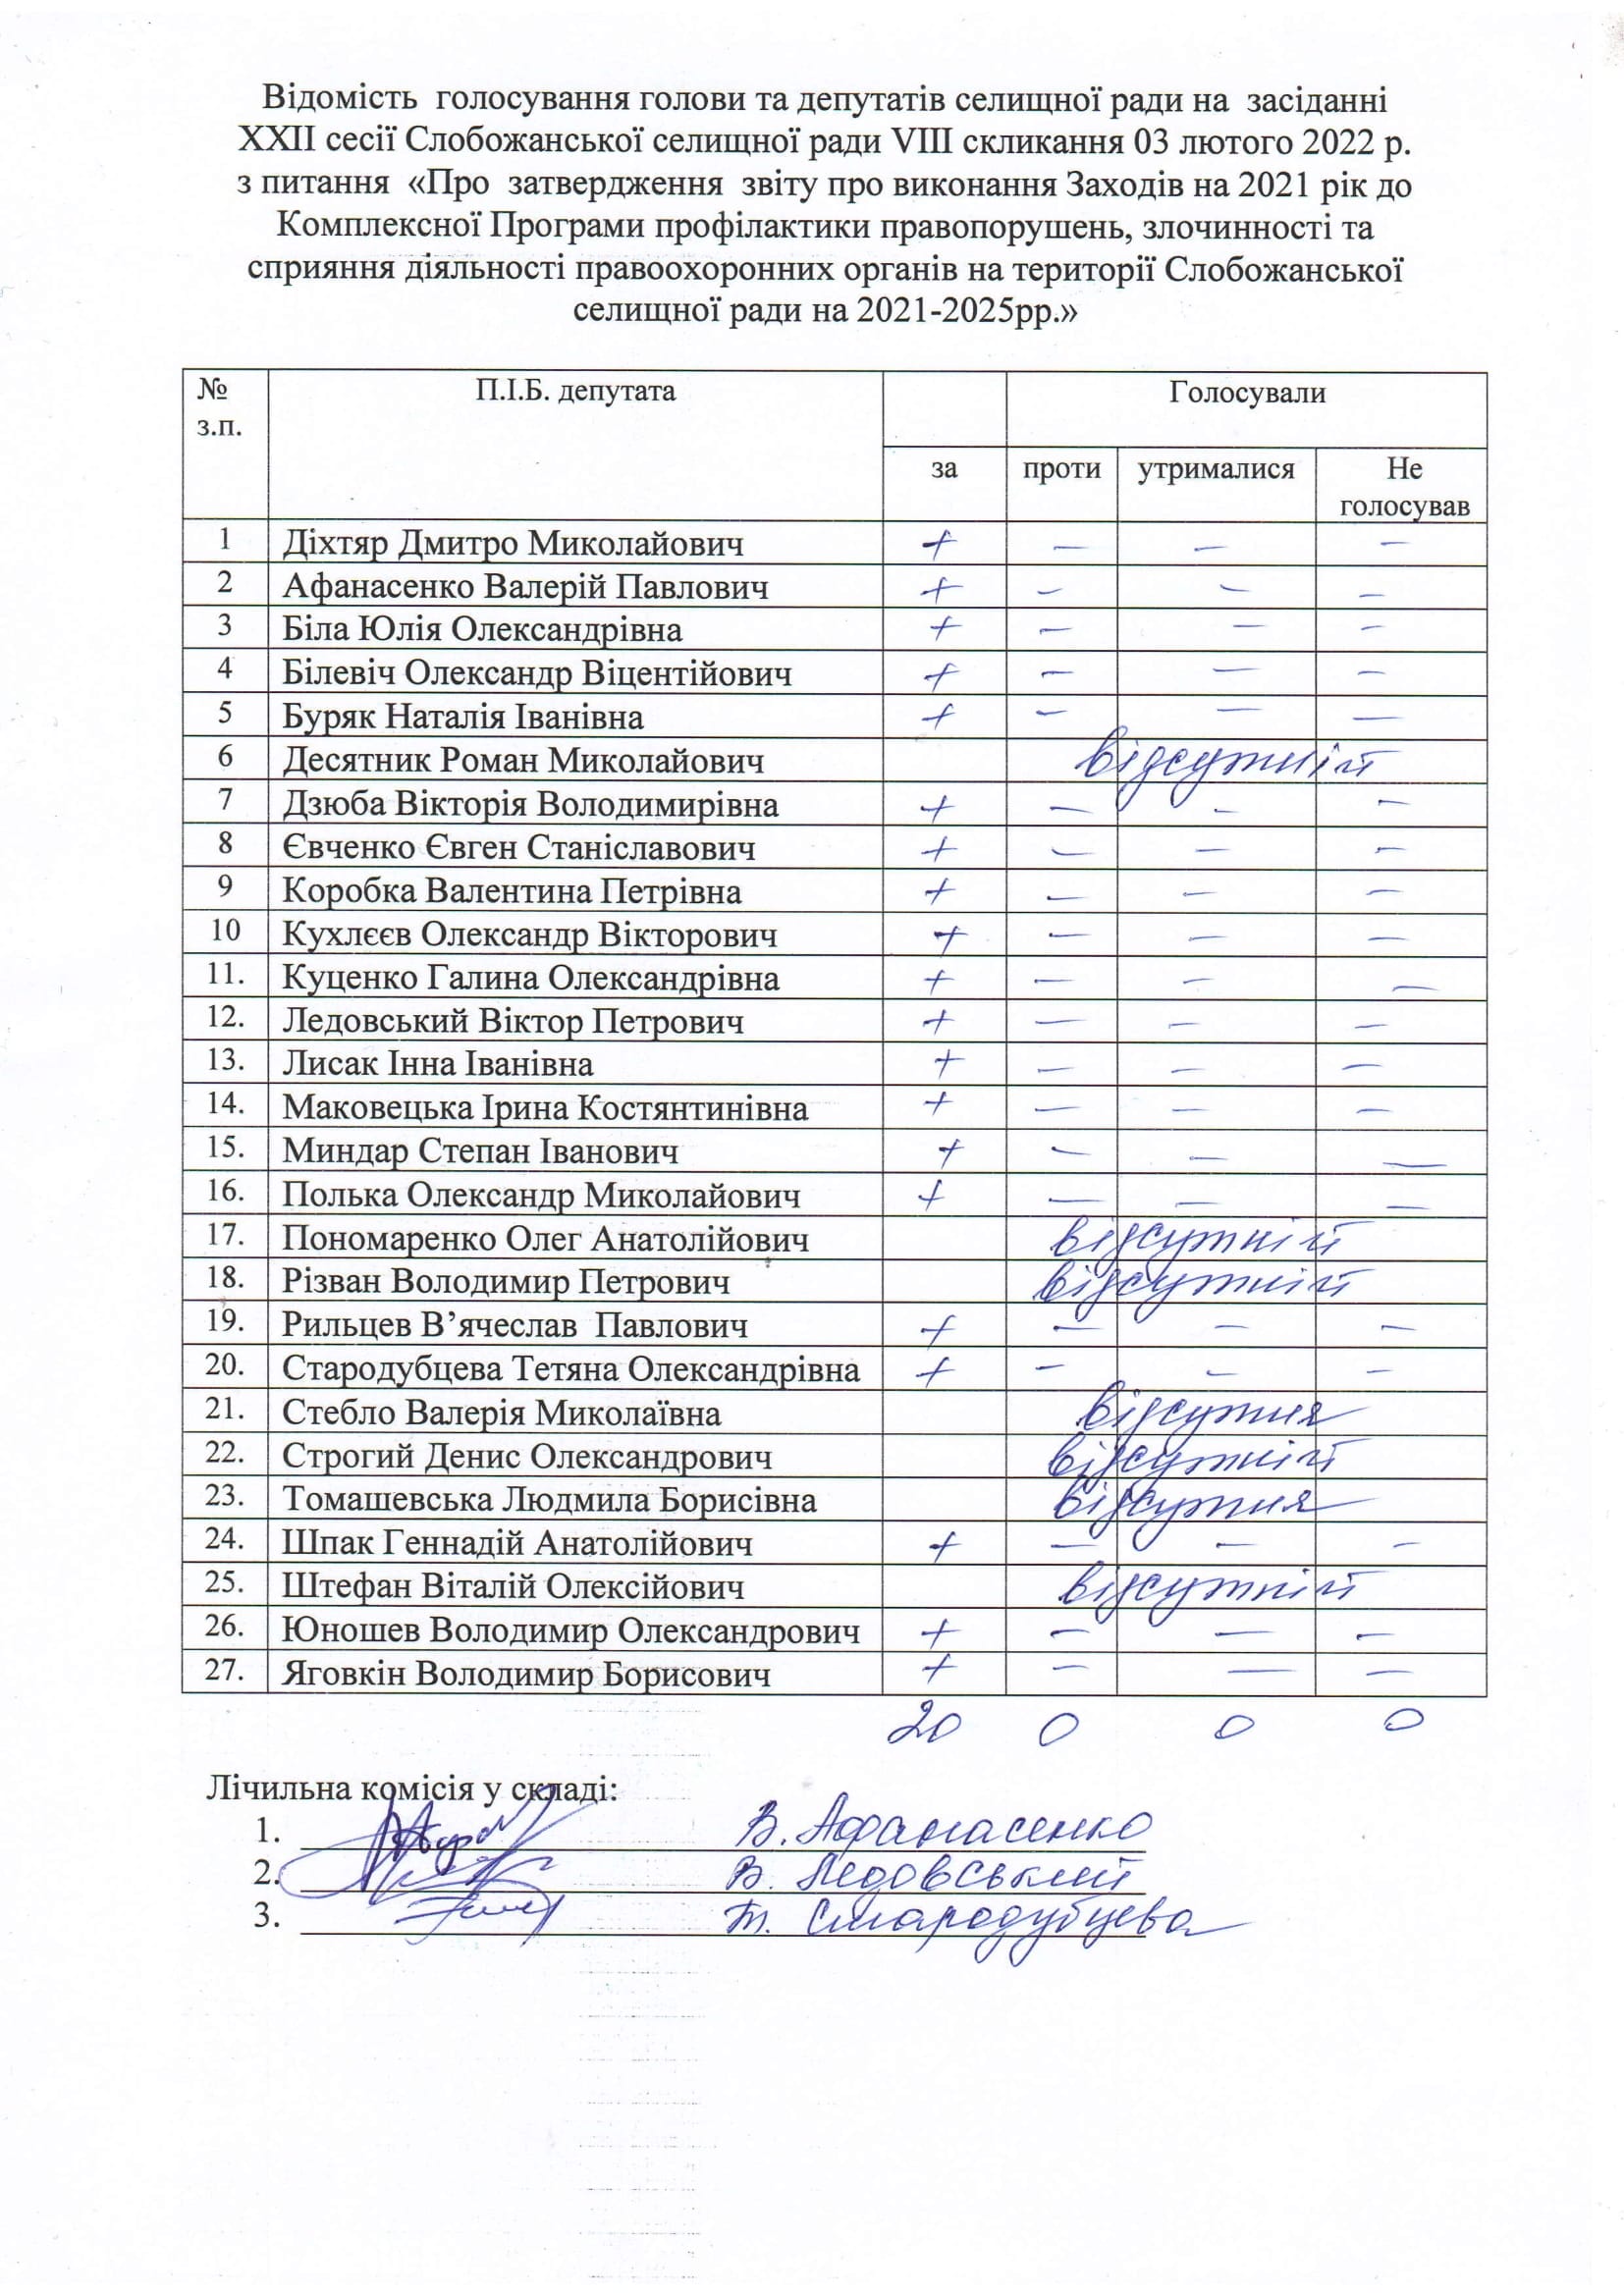 Відомість голосування голови та депутатів селищної ради на засіданні
XXII сесії Слобожанської селищної ради VIII скликання 03 лютого 2022 р.
з питання «Про затвердження звіту про виконання Заходів на 2021 рік до
Комплексної Програми профілактики правопорушень, злочинності та
сприяння діяльності правоохоронних органів на території Слобожанської
селищної ради на 2021-2025рр.»
№ з.п. П.І.Б. депутата Голосували
за проти утрималися Не голосував
1 Діхтяр Дмитро Миколайович + – – –
2 Афанасенко Валерій Павлович + – – –
3 Біла Юлія Олександрівна + – – –
4 Білевіч Олександр Віцентійович + – – –
5 Буряк Наталія Іванівна + – – –
6 Десятник Роман Миколайович відсутній
7 Дзюба Вікторія Володимирівна + – – –
8 Євченко Євген Станіславович + – – –
9 Коробка Валентина Петрівна + – – –
10 Кухлєєв Олександр Вікторович + – – –
11. Куценко Галина Олександрівна + – – –
12. Ледовський Віктор Петрович + – – –
13. Лисак Інна Іванівна + – – –
14. Маковецька Ірина Костянтинівна + – – –
15. Миндар Степан Іванович + – – –
16. Полька Олександр Миколайович + – – –
17. Пономаренко Олег Анатолійович відсутній
18. Різван Володимир Петрович відсутній
19. Рильцев В’ячеслав Павлович + – – –
20. Стародубцева Тетяна Олександрівна + – – –
21. Стебло Валерія Миколаївна відсутня
22. Строгий Денис Олександрович відсутній
23. Томашевська Людмила Борисівна відсутня
24. Шпак Геннадій Анатолійович + – – –
25. Штефан Віталій Олексійович відсутній
26. Юношев Володимир Олександрович + – – –
27. Яговкін Володимир Борисович + – – –
20 0 0 0
Лічильна комісія у складі:
1. В. Афанасенко
2. В. Ледовський
3. Т. Стародубцева